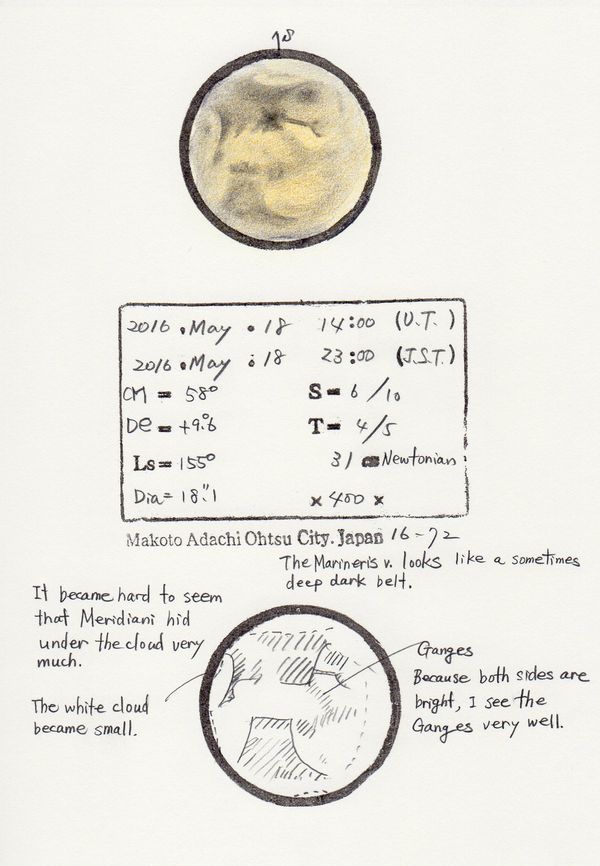 18
2016 . May . 18 14:00 (U.T.)
2016 . May . 18 23:00 (J.S.T.)
CM = 58° S = 6/10
De = +9.°6 T = 4/5
Ls = 155° 31 cm Newtonian
Dia = 18."1 × 400 ×
Makoto Adachi Ohtsu City. Japan 16-72
The Marineris v. looks like a sometimes
deep dark belt.
It became hard to seem
that Meridiani hid
under the cloud very
much.
The white cloud
became small.
Ganges
Because both sides are
bright, I see the
Ganges very well.